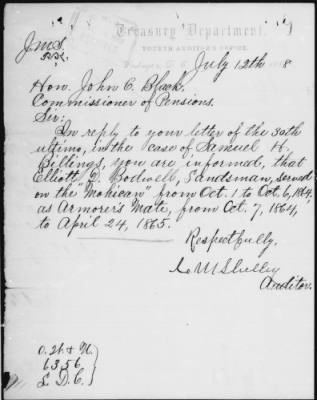 J.M.S.
Treasury Department,
FOURTH AUDITOR'S OFFICE,
Washington, D.C. July 12th 188
Hon. John C. Black,
Commissioner of Pensions.
Sir:
In reply to your letter of the 30th
ultimo, in the case of Samuel H.
Billings, you are informed, that
Elliott D. Bodwell, Landsman, served
on the "Mohican" from Oct. 1 to Oct. 6, 1864,
as Armorer's Mate, from Oct. 7, 1864,
to April 24, 1865.
Respectfully,
C M Shelley
Auditor.
O. W. & N.
6356
L. D. C.